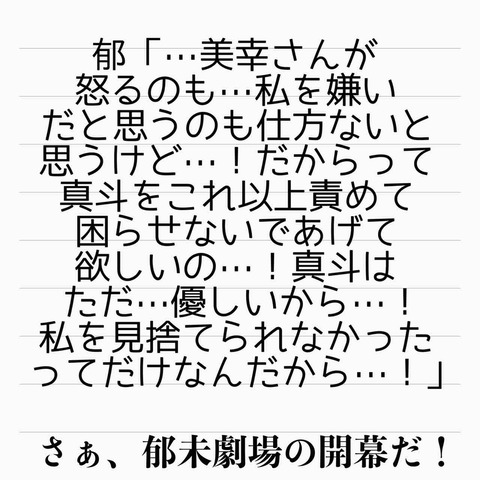 郁「…美幸さんが
怒るのも…私を嫌い
だと思うのも仕方ないと
思うけど…！だからって
真斗をこれ以上責めて
困らせないであげて
欲しいの…！真斗は
ただ…優しいから…！
私を見捨てられなかった
ってだけなんだから…！」
さぁ、郁未劇場の開幕だ！